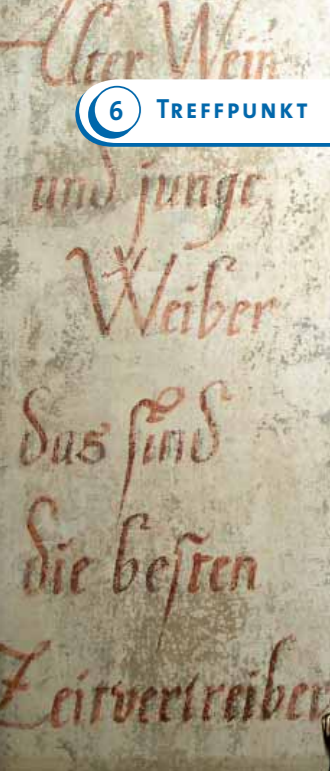 Alter Wein
6 TREFFPUNKT
und junge
Weiber
das sind
die besten
Zeitvertreiber